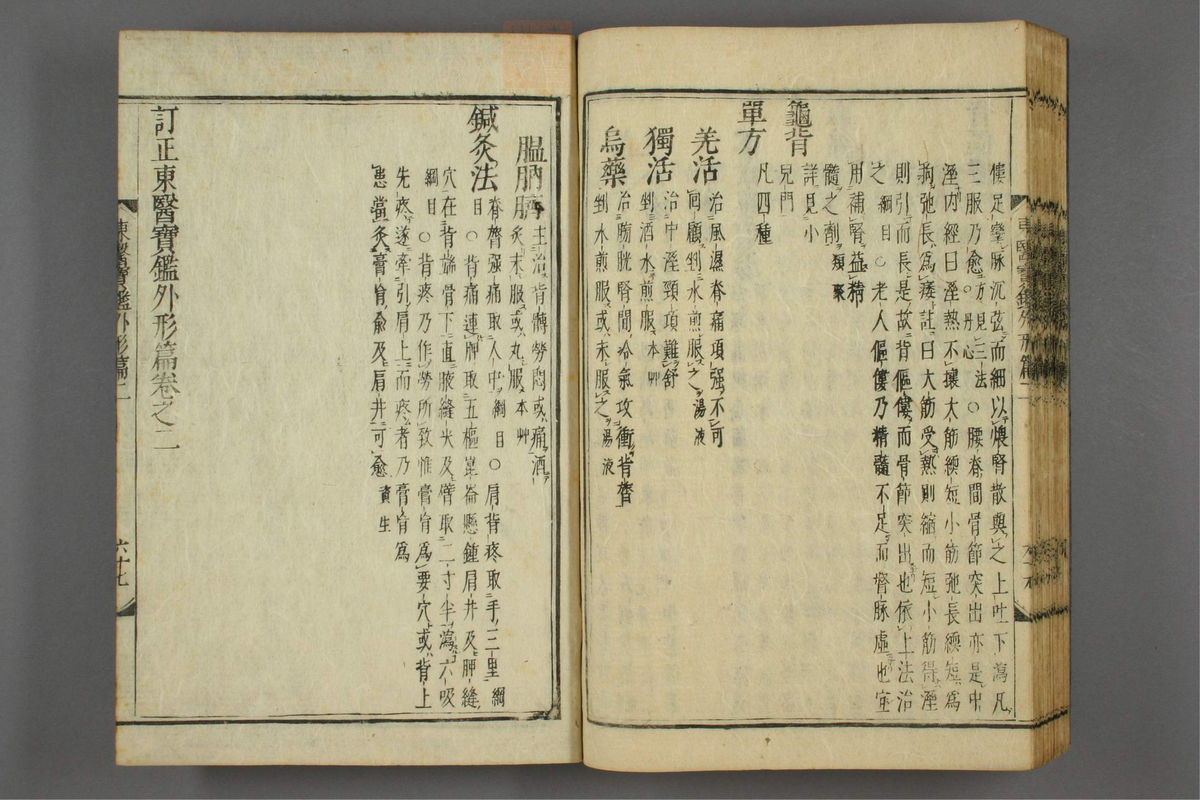 僂足攣脉沉弦而細以煨腎散與之上吐下瀉凡
三服乃愈○丹心 方見三法○腰脊間骨節突出亦是中
溼內經曰溼熱不攘大筋緛短小筋弛長緛短爲
拘弛長爲痿註曰大筋受熱則縮而短小筋得溼
則引而長是故背傴僂而骨節突出也依上法治
之綱目○老人傴僂乃精髓不足而督脉虛也宜
用補腎益精
髓之劑類聚
龜背
詳見小
兒門
單方
凡四種
羌活
治風濕脊痛項强不可
回顧剉水煎服之湯液
獨活
治中溼頸項難舒
剉酒水煎服本艸
烏藥
治膀胱腎間冷氣攻衝背膂
剉水煎服或末服之湯液
東醫寶鑑外形篇二
膃肭臍
主治背髆勞悶或痛酒
炙末服或丸服本艸
鍼灸法
脊膂强痛取人中綱目○肩背疼取手三里綱
目○背痛連胛取五樞崑崙懸鍾肩井及胛縫
穴在背端骨下直腋縫尖及臂取二寸半瀉六吸
綱目○背疼乃作勞所致惟膏肓爲要穴或背上
先疼遂牽引肩上而疼者乃膏肓爲
患當灸膏肓俞及肩井可愈資生
訂正東醫寶鑑外形篇卷之二
東醫寶鑑外形篇二
六十七